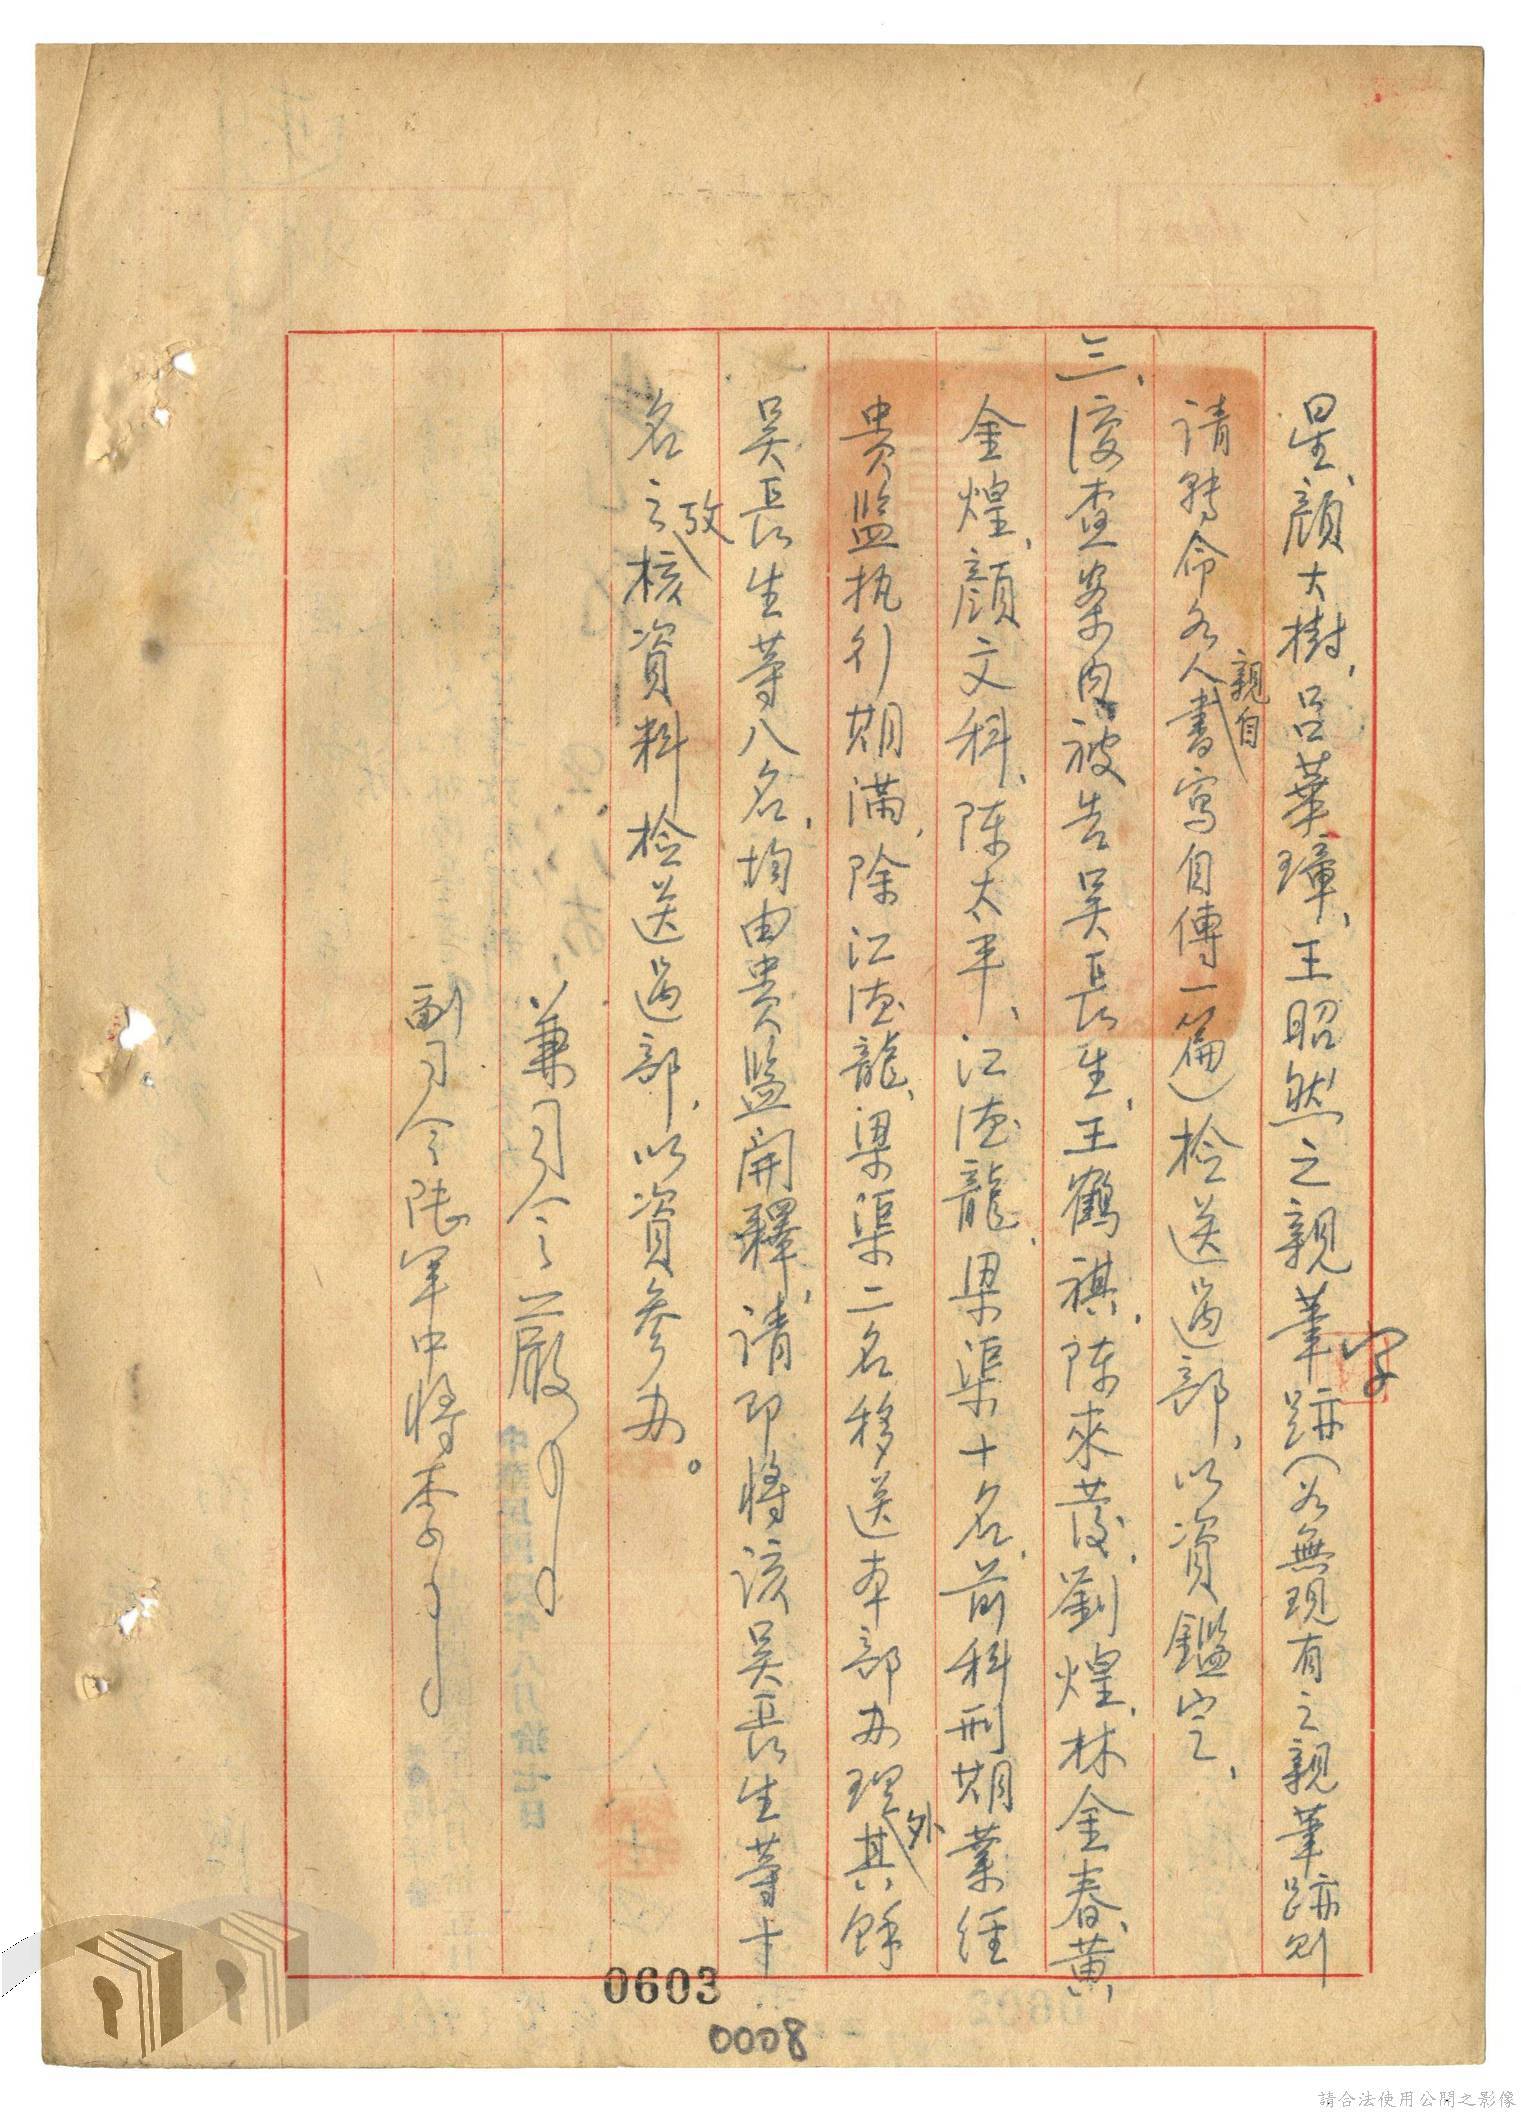 星、顏大樹、呂華璋、王昭然之親筆字跡（如無現有之親筆跡則
請轉命各人親自書寫自傳一篇）檢送过部，以資鑑定、
三、復查案內被告吳長生、王鶴祺、陈來發、劉煌、林金春、黃
金煌、顏文科、陈太平、江德龍、梁渠十名，前科刑期業經
貴監执行期滿，除江德龍、梁渠二名移送本部办理外其餘
吳長生等八名，均由貴監開釋，请即將该吳長生等十
名之攷核資料检送过部，以資參办。
兼司令嚴
副司令陆军中將李
中華民國 年八月拾七日
0603
0008
請合法使用公開之影像